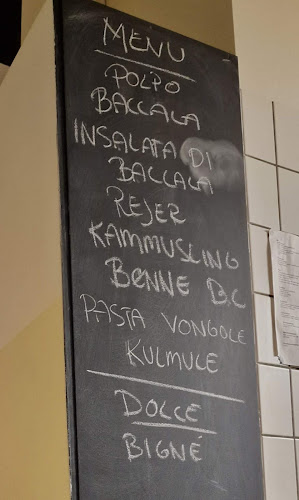 MENU
POLPO
BACCALA
INSALATA DI
BACCALA
REJER
KAMMUSLING
BØNNE B.C
PASTA VONGOLE
KULMULE
DOLCE
BIGNÉ